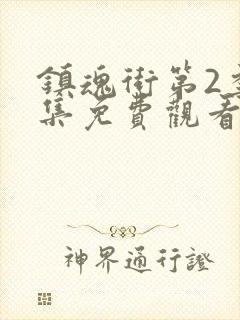 鎮魂街第2
集免費觀看
神界通行證